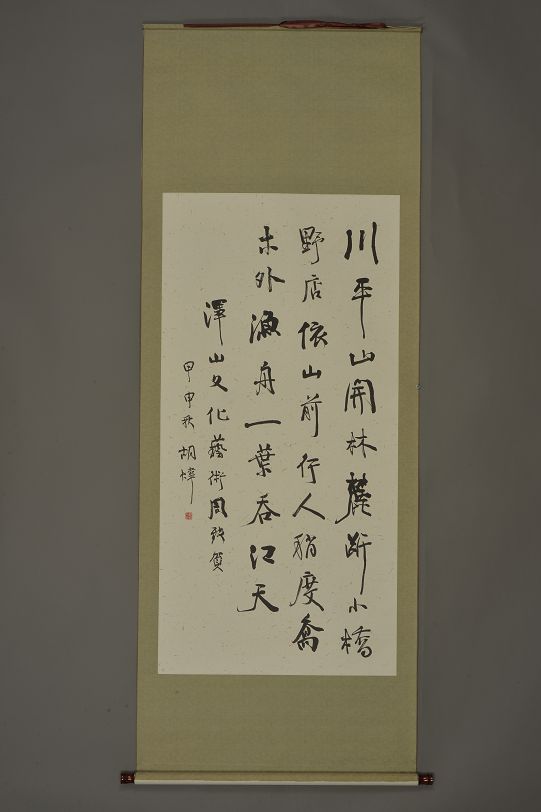 川平山開林麓断小橋
野店依山前行人稍度喬
木外漁舟一葉吞江天
澤山文化藝術周致賀
甲申秋胡幝